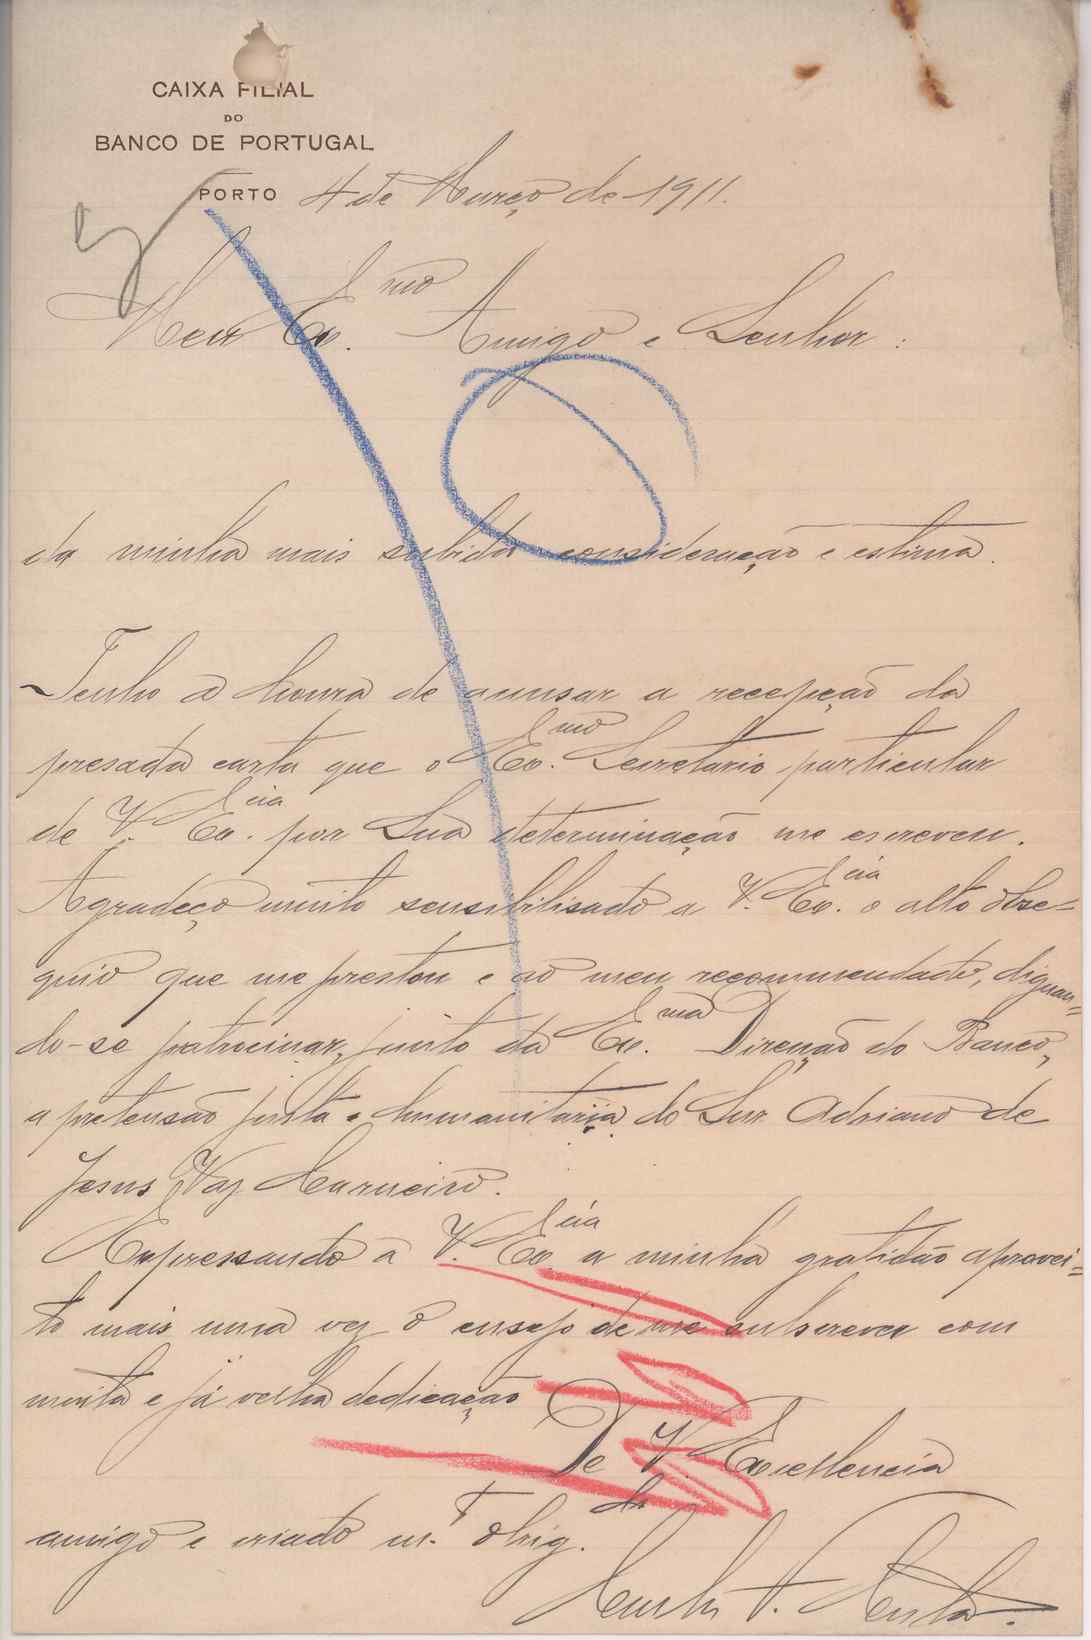 CAIXA FILIAL
DO
BANCO DE PORTUGAL
PORTO 4 de Março de 1911.
Meu Ex.mo Amigo e Senhor:
da minha mais subida consideração e estima.
Tenho a honra de accusar a recepção da
presada carta que o Ex.mo Secretario particular
de V. Ex.cia por Sua determinação me escreveu.
Agradeço muito sensibilisado a V. Ex.cia o alto obse-
quio que me prestou e ao meu recommendado, dignan-
do-se patrocinar, junto da Ex.ma Direcção do Banco,
a pretensão justa e humanitaria do Snr. Adriano de
Jesus Vaz Carneiro.
Expressando a V. Ex.cia a minha gratidão aprovei-
to mais uma vez o ensejo de me subscrever com
muita e já velha dedicação
De V. Excellencia
amigo e criado m.to obrig.do